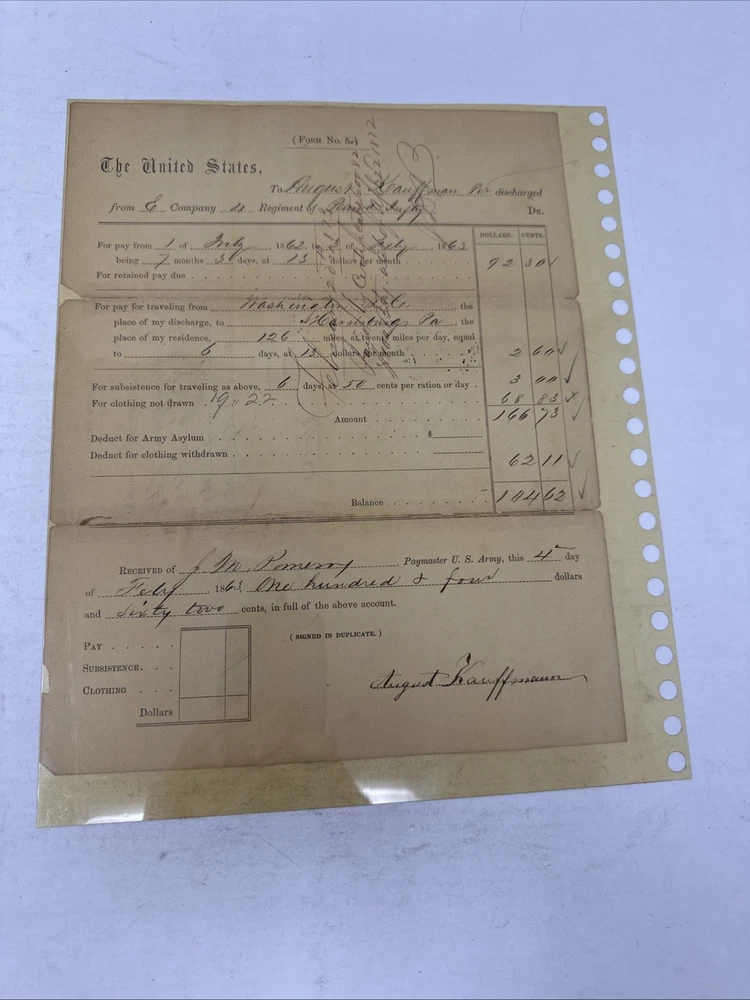 (FORM No. 5.)
The United States,
To August Kauffman Pvt discharged
from E Company 4 Regiment of Penna Infty Dr.
DOLLARS. CENTS.
For pay from 1 of July 1862 to 3 of Feby 1863
being 7 months 3 days, at 13 dollars per month 92 30
For retained pay due
For pay for traveling from Washington D.C. the
place of my discharge, to Harrisburg Pa the
place of my residence, 126 miles, at twenty miles per day, equal
to 6 days, at 13 dollars per month 2 60
For subsistence for traveling as above, 6 days, at 50 cents per ration or day 3 00
For clothing not drawn 19.. 22 68 83
Amount 166 73
Deduct for Army Asylum $
Deduct for clothing withdrawn 62 11
Balance 104 62
RECEIVED of J. M. Pomeroy Paymaster U. S. Army, this 4th day
of Feby 1863, One hundred & four dollars
and Sixty two cents, in full of the above account.
(SIGNED IN DUPLICATE.)
PAY
SUBSISTENCE
CLOTHING
Dollars
August Kauffmann